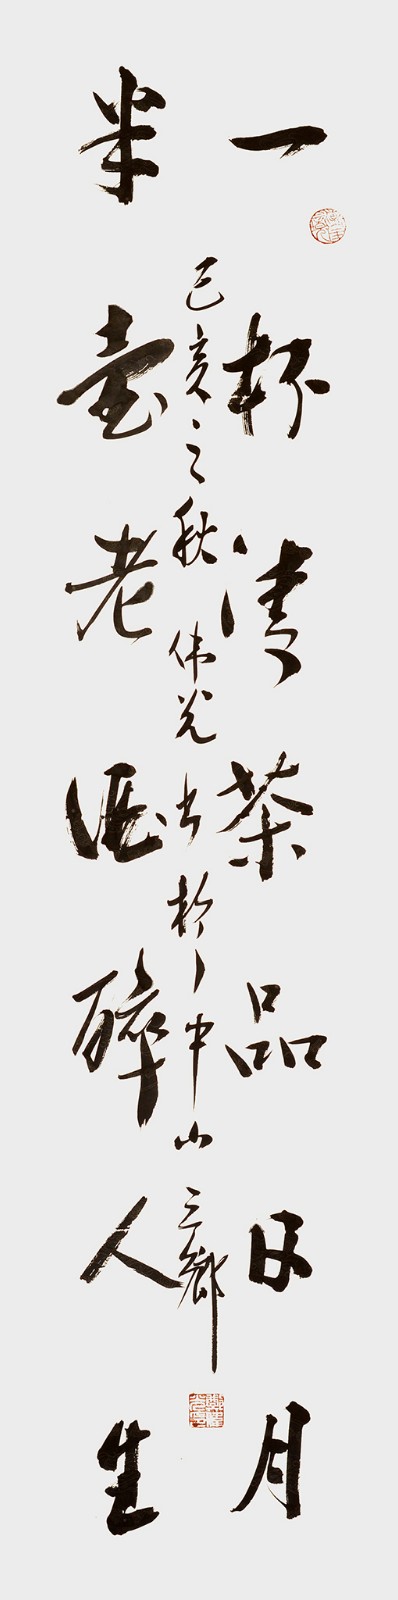 一杯清茶品日月
半壶老酒醉人生
己亥之秋伟光书於中山三乡